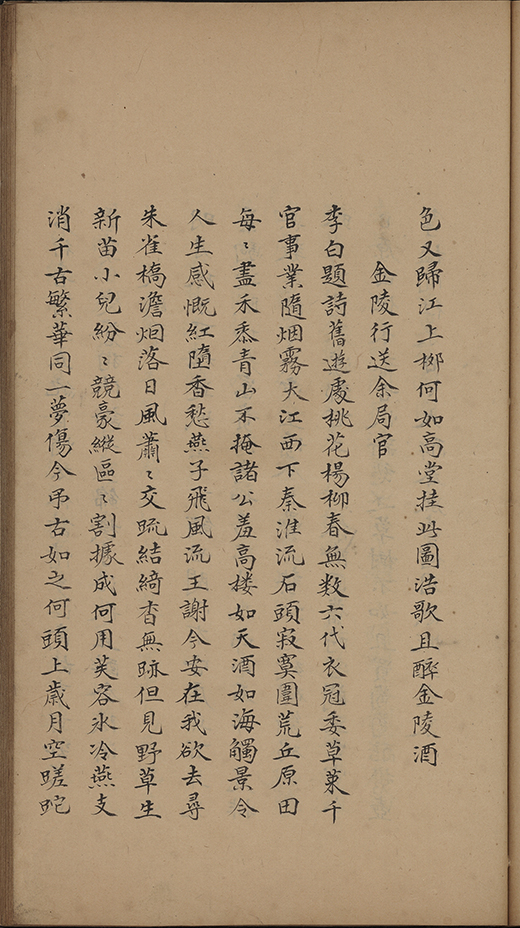 色又歸江上栁何如高堂挂此圖浩歌且醉金陵酒
金陵行送余局官
李白題詩舊遊處桃花楊柳春無数六代衣冠委草萊千
官事業隨烟霧大江西下秦淮流石頭寂寞圍荒丘原田
每〻盡禾黍青山不掩諸公羞高樓如天酒如海觸景令
人生感慨紅墮香愁燕子飛風流王謝今安在我欲去尋
朱雀橋澹烟落日風蕭〻交疏結綺杳無跡但見野草生
新苗小兒紛〻競豪縱區〻割據成何用芙容氷冷燕支
消千古繁華同一夢傷今弔古如之何頭上歲月空蹉跎